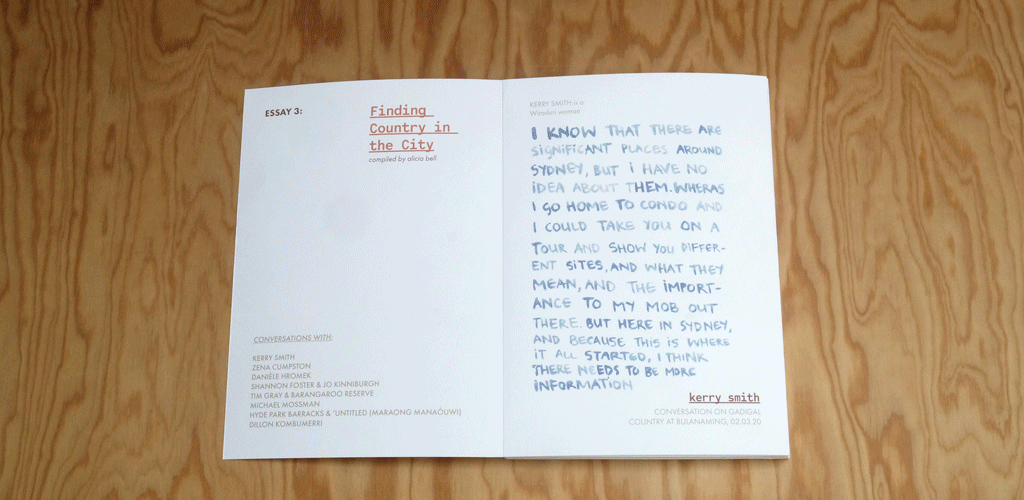 ESSAY 3:
Finding
Country in
the City
compiled by alicia bell
CONVERSATIONS WITH:
KERRY SMITH
ZENA CUMPSTON
DANIÈLE HROMEK
SHANNON FOSTER & JO KINNIBURGH
TIM GRAY & BARANGAROO RESERVE
MICHAEL MOSSMAN
HYDE PARK BARRACKS & 'UNTITLED (MARAONG MANAÓUWI)
DILLON KOMBUMERRI
KERRY SMITH is a
Wiradjuri woman
I KNOW THAT THERE ARE
SIGNIFICANT PLACES AROUND
SYDNEY, BUT I HAVE NO
IDEA ABOUT THEM. WHERAS
I GO HOME TO CONDO AND
I COULD TAKE YOU ON A
TOUR AND SHOW YOU DIFFER-
ENT SITES, AND WHAT THEY
MEAN, AND THE IMPORT-
ANCE TO MY MOB OUT
THERE. BUT HERE IN SYDNEY,
AND BECAUSE THIS IS WHERE
IT ALL STARTED, I THINK
THERE NEEDS TO BE MORE
INFORMATION
kerry smith
CONVERSATION ON GADIGAL
COUNTRY AT BULANAMING, 02.03.20